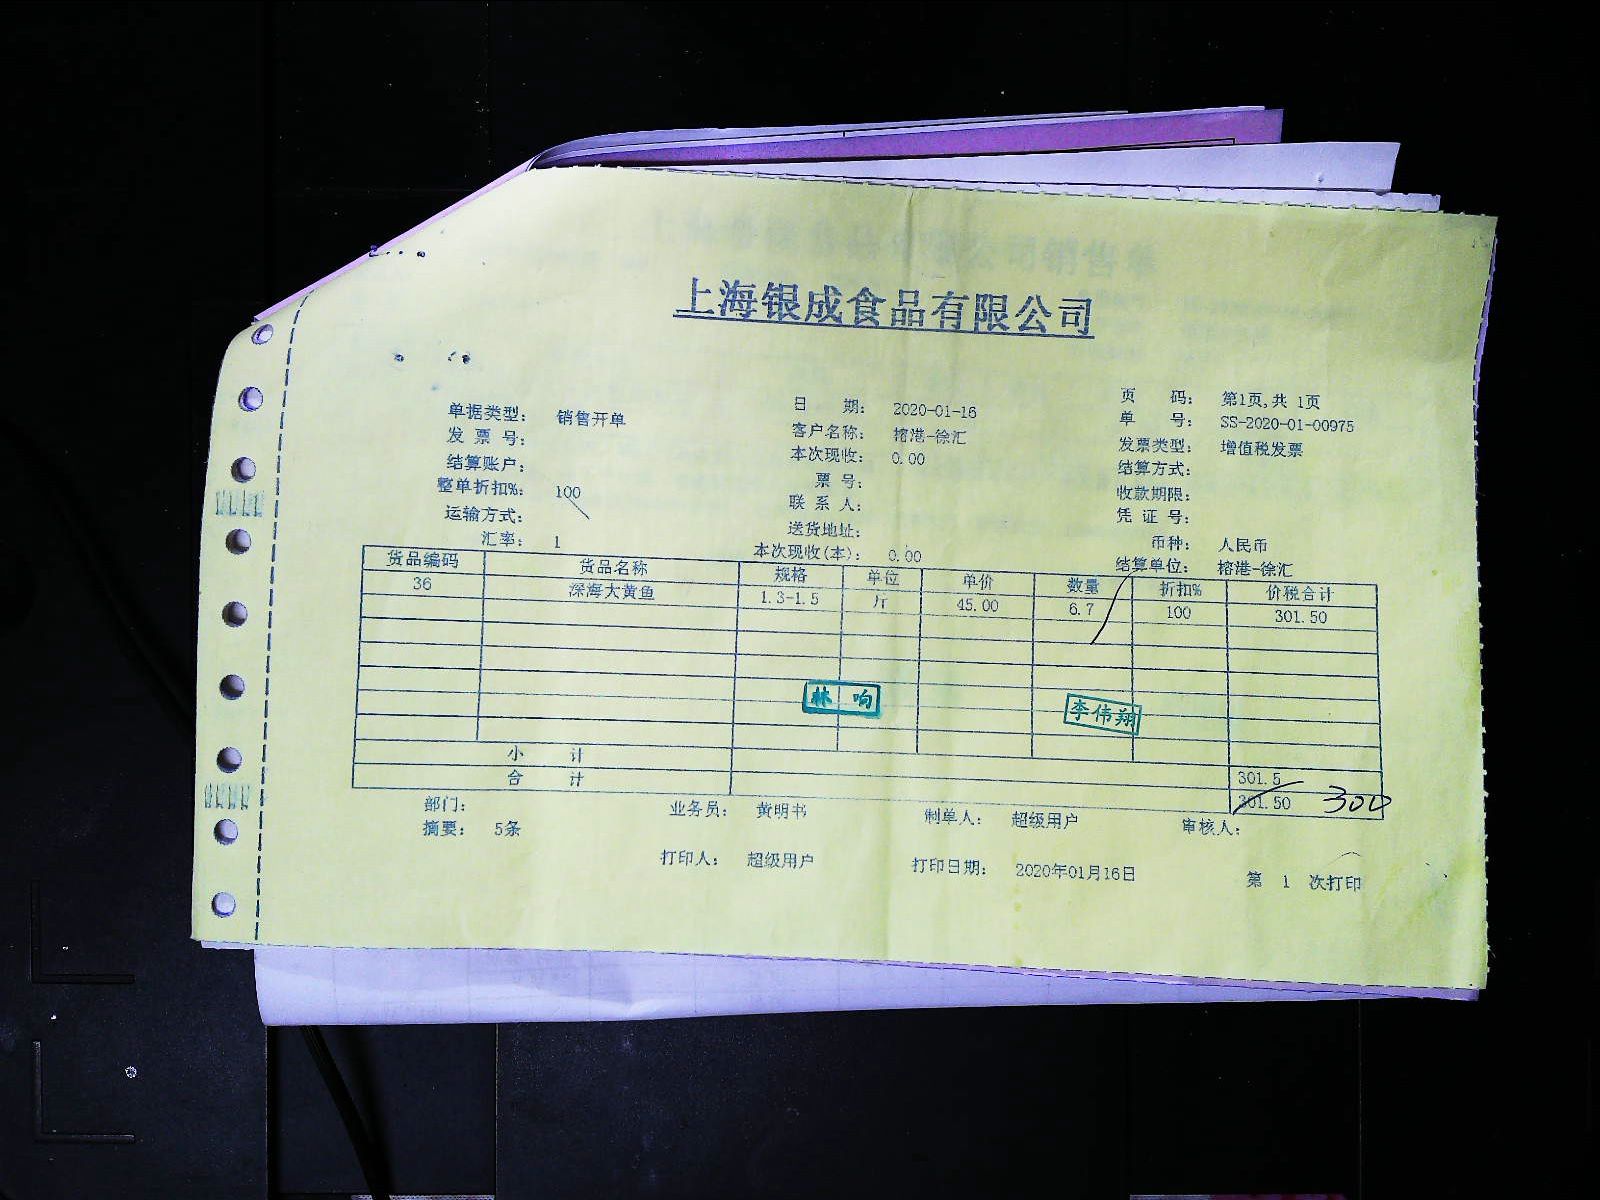 上海银成食品有限公司
单据类型: 销售开单 日 期: 2020-01-16 页 码: 第1页,共 1页
发 票 号: 客户名称: 榕港-徐汇 单 号: SS-2020-01-00975
结算账户: 本次现收: 0.00 发票类型: 增值税发票
整单折扣%: 100 票 号: 结算方式:
运输方式: 联 系 人: 收款期限:
汇率: 1 送货地址: 凭 证 号:
本次现收(本): 0.00 币种: 人民币
结算单位: 榕港-徐汇
货品编码 货品名称 规格 单位 单价 数量 折扣% 价税合计
36 深海大黄鱼 1.3-1.5 斤 45.00 6.7 100 301.50
林 响 李伟翔
小 计 301.5
合 计 301.50 300
部门: 业务员: 黄明书 制单人: 超级用户 审核人:
摘要: 5条
打印人: 超级用户 打印日期: 2020年01月16日 第 1 次打印